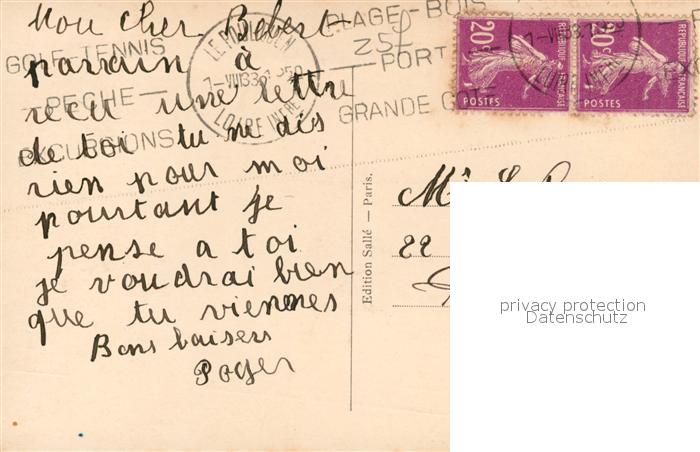 Mon cher Bebert
parrain à
reçu une lettre
de toi tu me dis
rien pour moi
pourtant je
pense a toi
je voudrai bien
que tu viennes
Bons baisers
Roger
GOLF TENNIS
—PECHE—
EXCURSIONS
LE POULIGUEN
7-VIII 33
LOIRE INFRE
PLAGE-BOIS
—PORT—
GRANDE COTE
25F
20c
REPUBLIQUE FRANÇAISE
POSTES
20c
REPUBLIQUE FRANÇAISE
POSTES
7-VIII 33
LOIRE INFRE
Edition Sallé — Paris.
Mr
22
privacy protection
Datenschutz